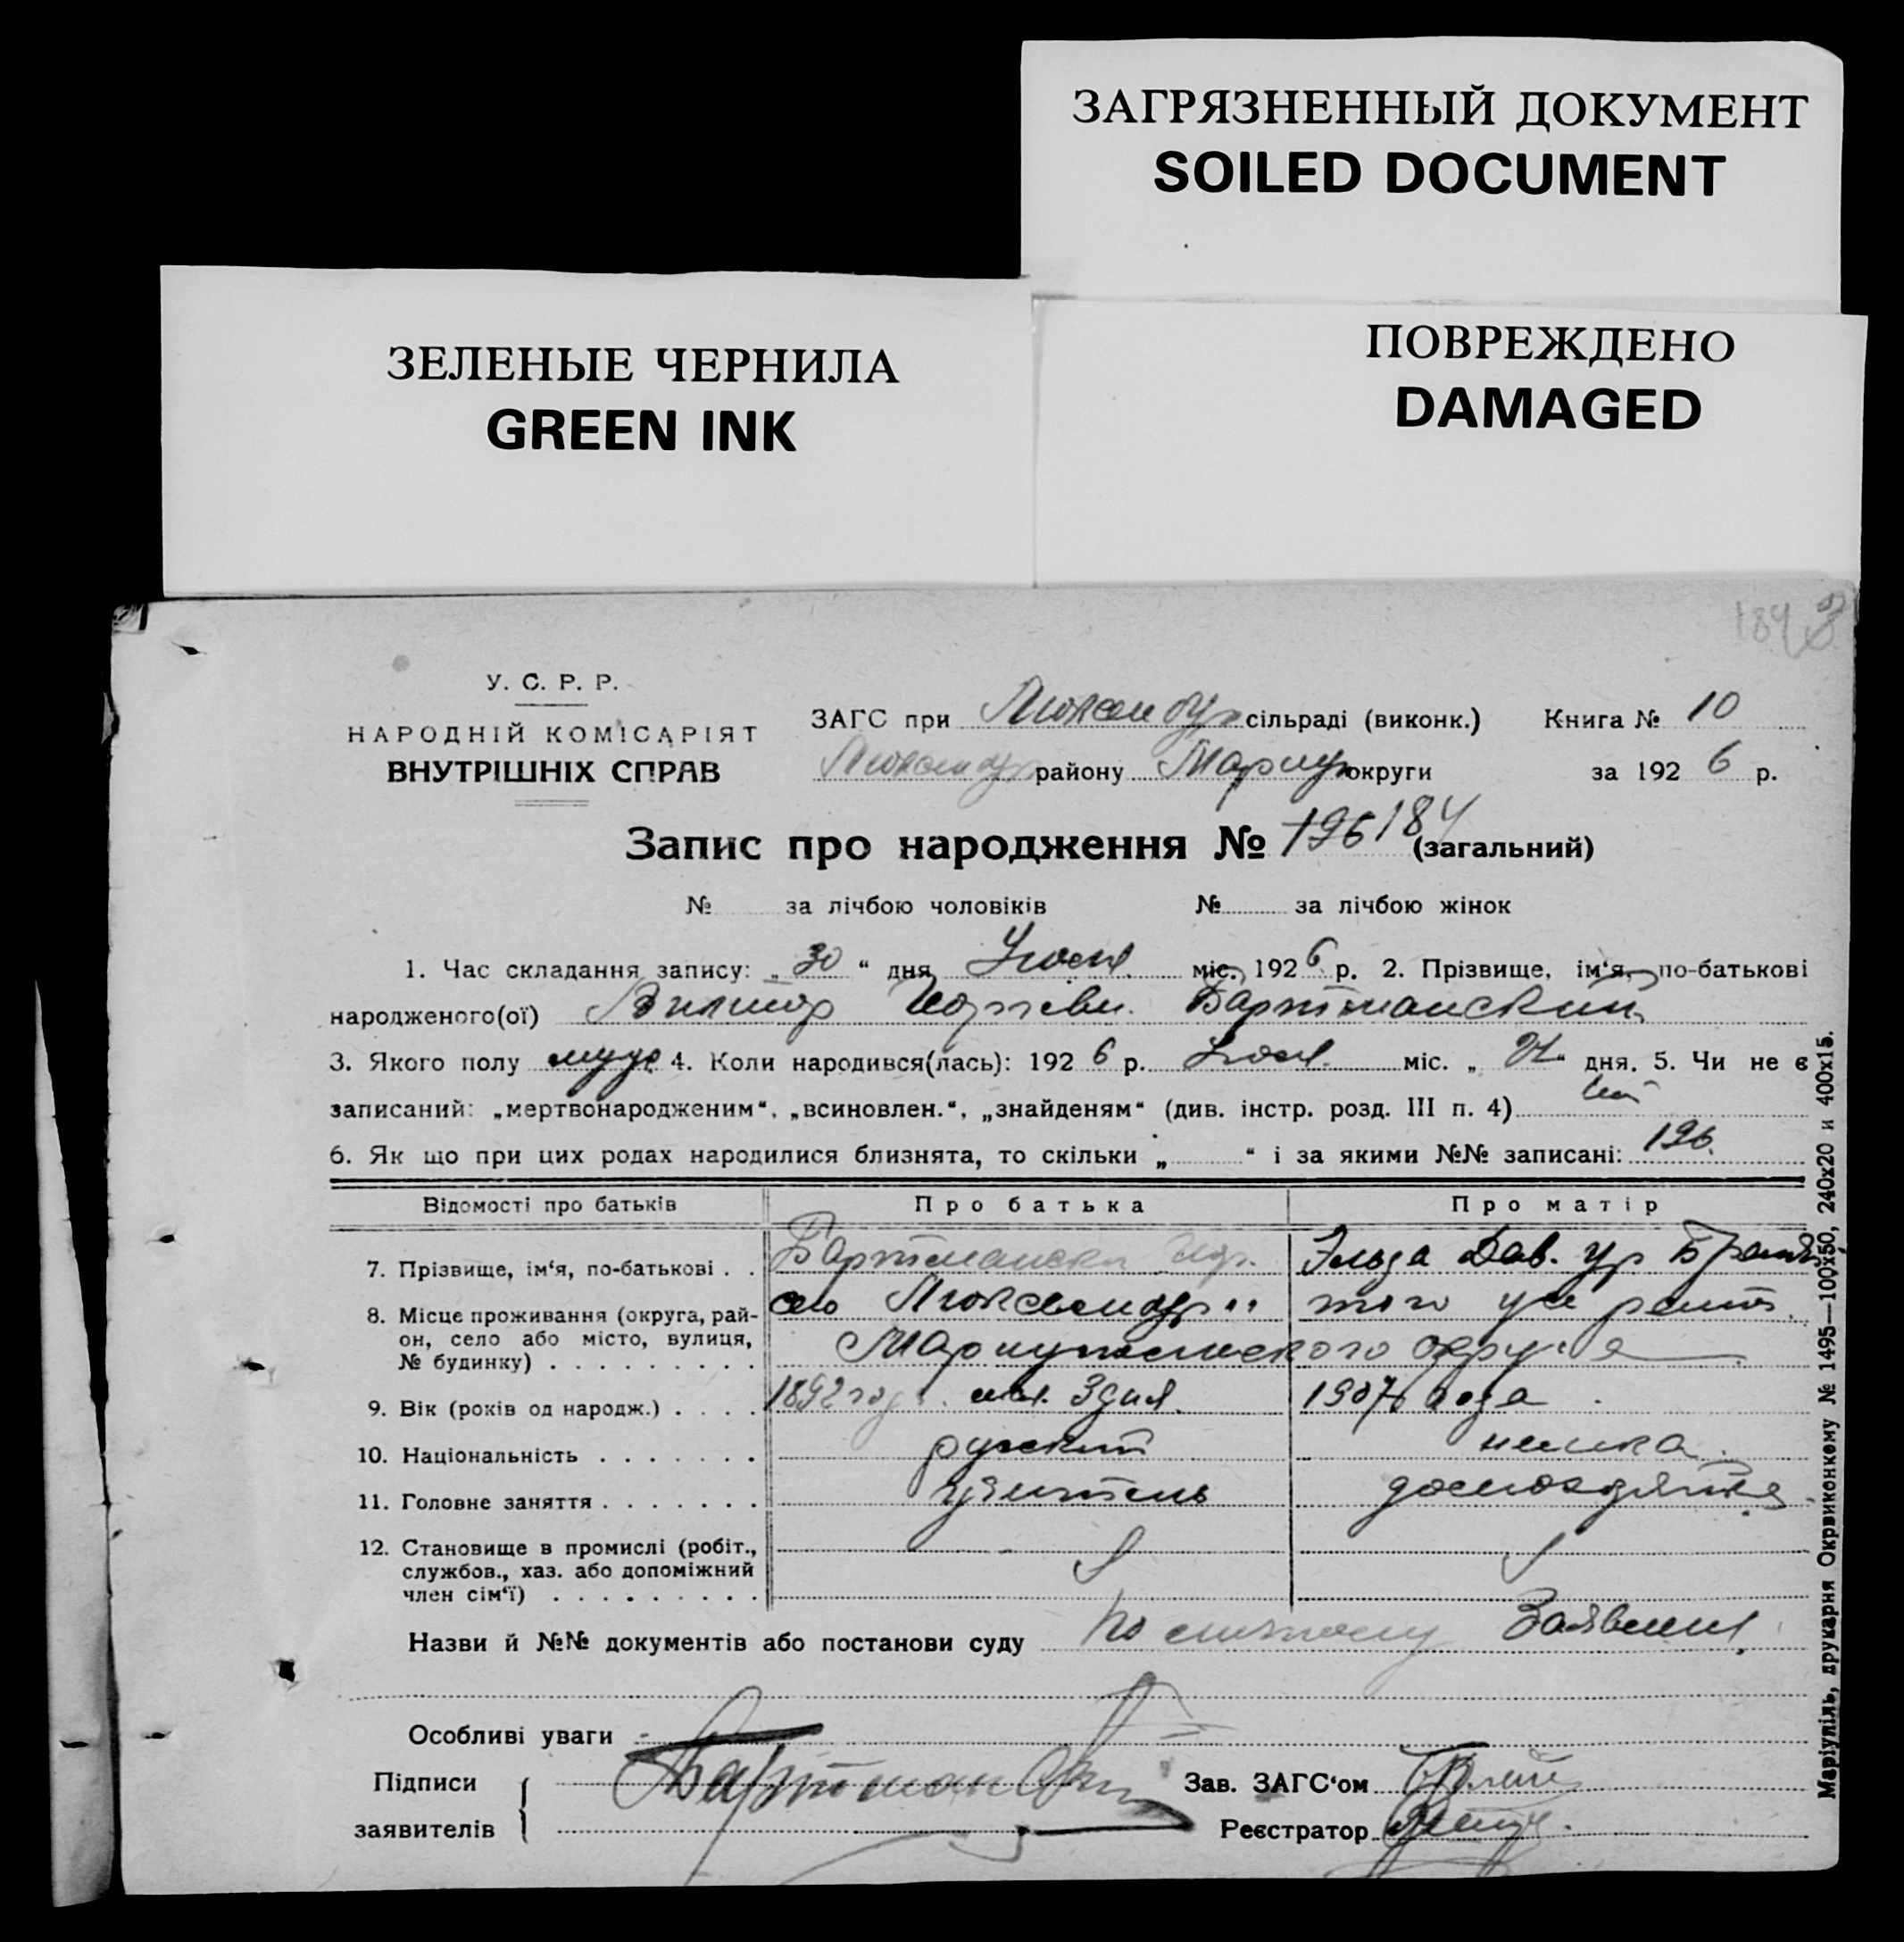 ЗАГРЯЗНЕННЫЙ ДОКУМЕНТ
SOILED DOCUMENT
ЗЕЛЕНЫЕ ЧЕРНИЛА
GREEN INK
ПОВРЕЖДЕНО
DAMAGED
184
У. С. Р. Р.
НАРОДНІЙ КОМІСАРІЯТ
ВНУТРІШНІХ СПРАВ
ЗАГС при Люксембур сільраді (виконк.) Книга № 10
району Мариуп округи за 1926 р.
Запис про народження № 196 184 (загальний)
№ за лічбою чоловіків № за лічбою жінок
1. Час складання запису: „30“ дня Июня міс. 1926 р. 2. Прізвище, ім‘я, по-батькові
народженого(ої) Виктор Бартманский
3. Якого полу муж 4. Коли народився(лась): 1926 р. Июня міс. „ “ дня. 5. Чи не є
записаний: „мертвонародженим“, „всиновлен.“, „знайденям“ (див. інстр. розд. III п. 4)
6. Як що при цих родах народилися близнята, то скільки „ “ і за якими №№ записані: 196
Відомості про батьків Про батька Про матір
7. Прізвище, ім‘я, по-батькові . . Бартмански Эльза Дав. ур
8. Місце проживання (округа, рай-
он, село або місто, вулиця,
№ будинку) . . . . . . . . . село Люксембур того же
Мариупольского округа
9. Вік (років од народж.) . . . . 1892 1907 года
10. Національність . . . . . . . русский немка
11. Головне заняття . . . . . . . учитель домохозяйка
12. Становище в промислі (робіт.,
службов., хаз. або допоміжний
член сім‘ї) . . . . . . . . .
Назви й №№ документів або постанови суду По Заявлению
Особливі уваги
Підписи
заявителів Бартмански
Зав. ЗАГС‘ом
Реєстратор
Маріупіль, друкарня Окрвиконкому № 1495—100х50, 240х20 и 400х15.